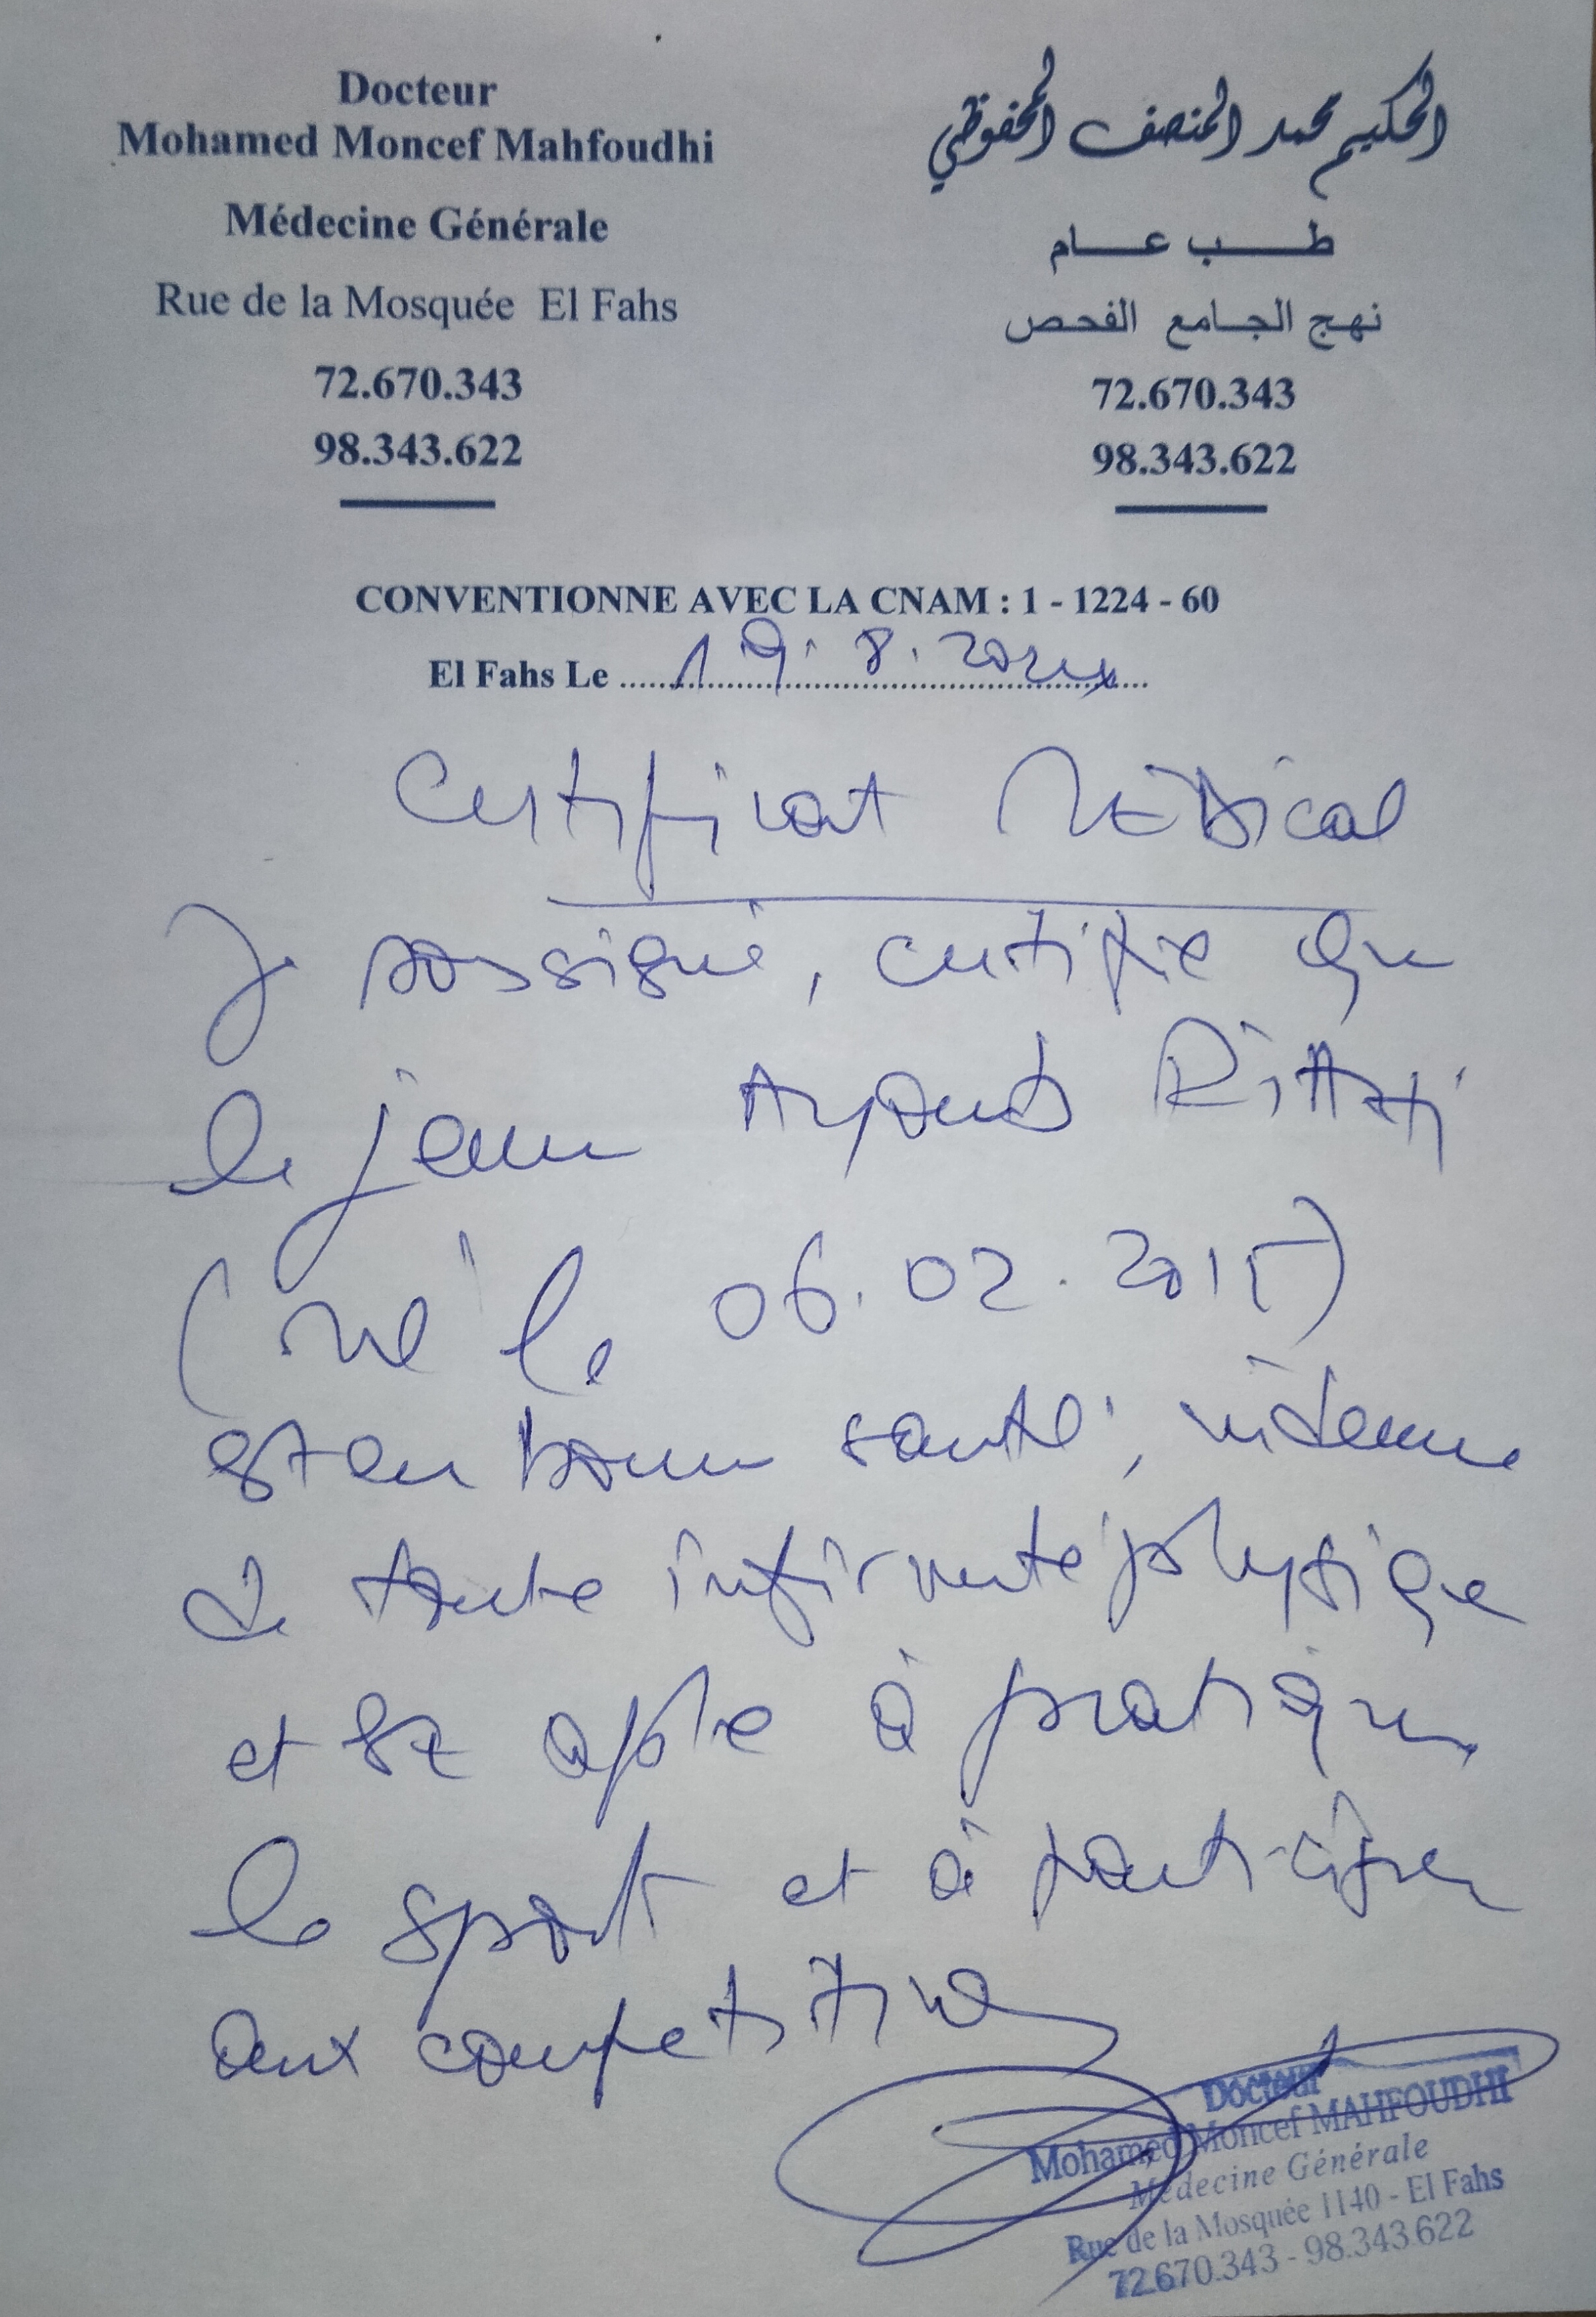 Docteur
Mohamed Moncef Mahfoudhi
Médecine Générale
Rue de la Mosquée El Fahs
72.670.343
98.343.622
الحكيم محمد المنصف المحفوظي
طب عام
نهج الجامع الفحص
72.670.343
98.343.622
CONVENTIONNE AVEC LA CNAM : 1 - 1224 - 60
El Fahs Le 19.8.2024
Certificat Médical
Je soussigné, certifie que
le jeune Ayoub
(né le 06.02.2015)
est en bonne santé, indemne
de toute infirmité physique
et est apte à pratiquer
le sport et à participer
aux competitions
Docteur
Mohamed Moncef MAHFOUDHI
Médecine Générale
Rue de la Mosquée 1140 - El Fahs
72.670.343 - 98.343.622